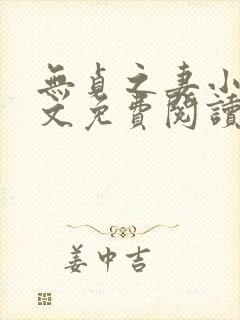 無貞之妻小
文免費閱讀
姜中吉